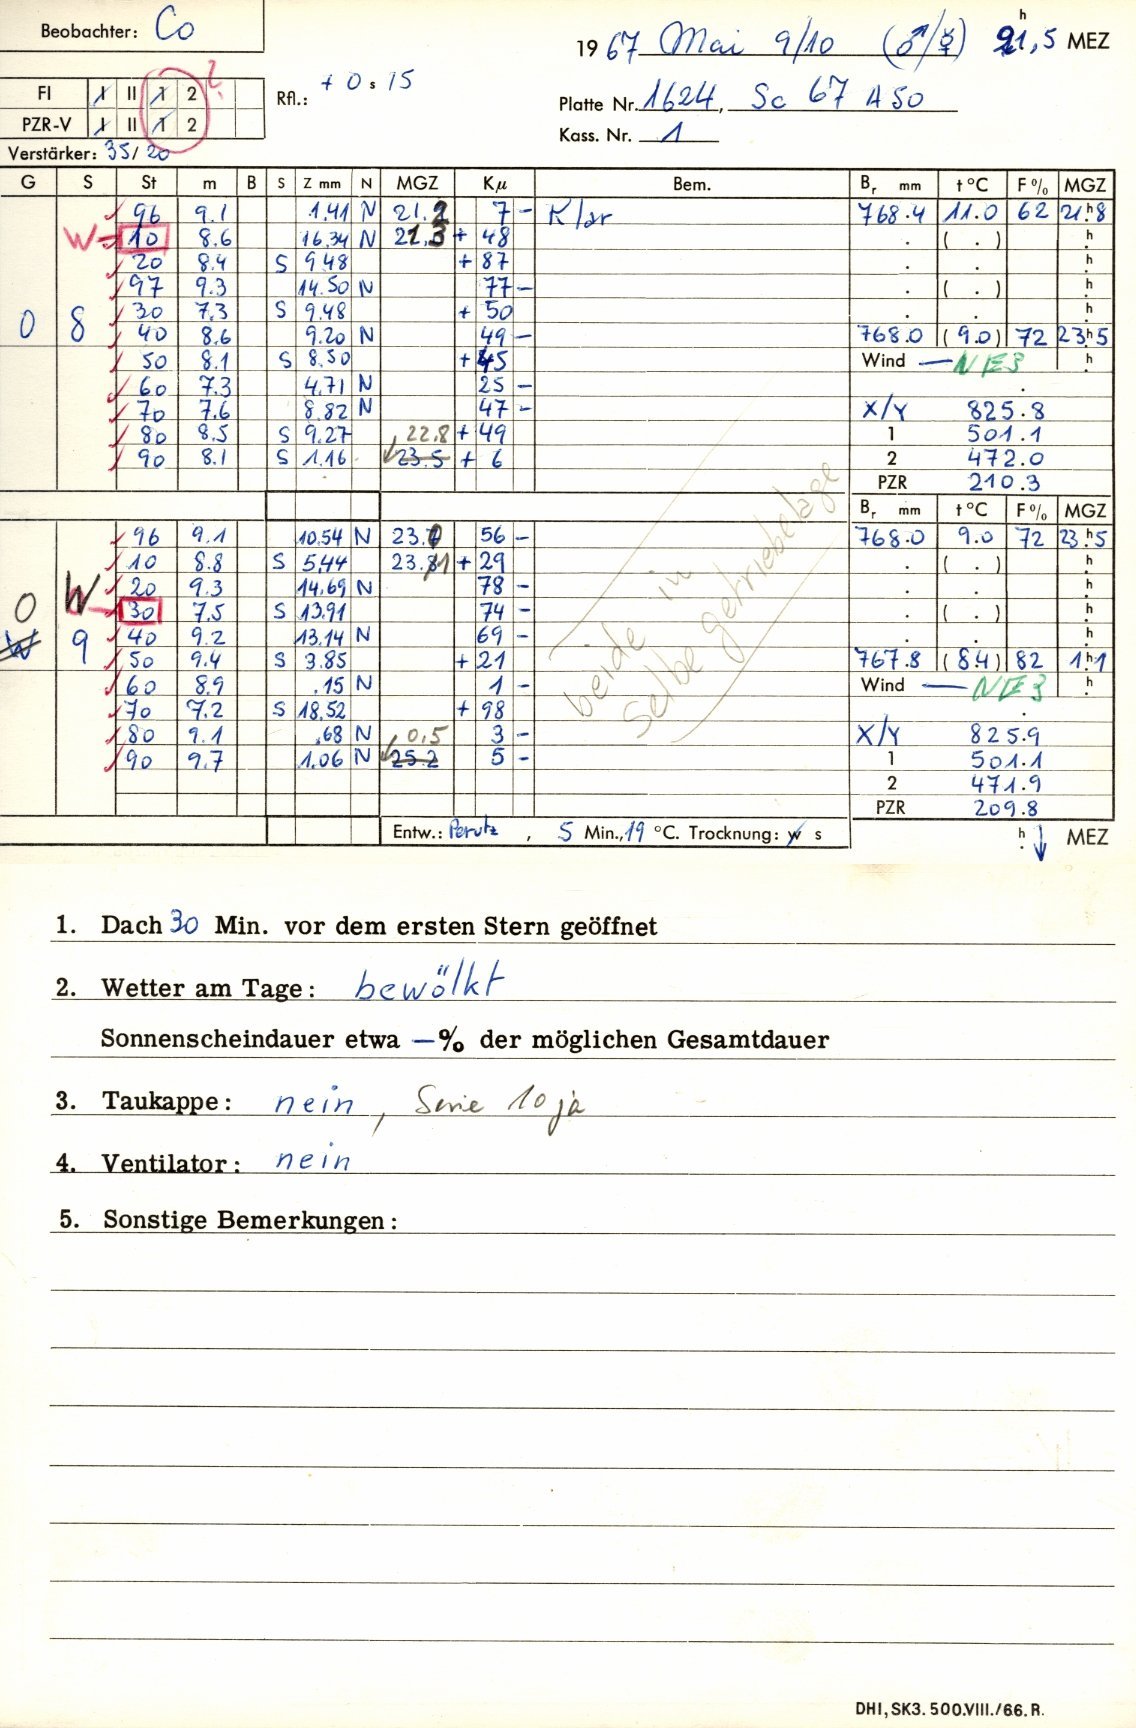 Beobachter: Co
1967 Mai 9/10 (♂/☿) 21,5 h MEZ
FI I II 1 2 ?
PZR-V I II 1 2
Rfl.: + 0 s 15
Platte Nr. 1624, Sc 67 A 50
Kass. Nr. 1
Verstärker: 35/20
G S St m B S Z mm N MGZ Kµ Bem. Br mm t °C F % MGZ
96 9.1 1.41 N 21.2 7 - Klar 768.4 11.0 62 21h8
W 10 8.6 16.34 N 21.3 + 48 . ( . ) h
20 8.4 S 9.48 + 87 . . h
97 9.3 14.50 N 77 - . ( . ) h
0 8 30 7.3 S 9.48 + 50 . . h
40 8.6 9.20 N 49 - 768.0 (9.0) 72 23h5
50 8.1 S 8.50 + 45 Wind — NE3 h
60 7.3 4.71 N 25 -
70 7.6 8.82 N 47 - X/Y 825.8
80 8.5 S 9.27 22.8 + 49 1 501.1
90 8.1 S 1.16 23.5 + 6 2 472.0
PZR 210.3
Br mm t °C F % MGZ
96 9.1 10.54 N 23.7 56 - 768.0 9.0 72 23h5
10 8.8 S 5.44 23.81 + 29 . ( . ) h
20 9.3 14.69 N 78 - . . h
0 W 30 7.5 S 13.91 74 - . ( . ) h
W 9 40 9.2 13.14 N 69 - . . h
50 9.4 S 3.85 + 21 767.8 (8.4) 82 1h1
60 8.9 .15 N 1 - Wind — NE3 h
70 7.2 S 18.52 + 98
80 9.1 .68 N 0.5 3 - X/Y 825.9
90 9.7 1.06 N 25.2 5 - 1 501.1
2 471.9
PZR 209.8
beide in
selbe getriebelage
Entw.: Perutz, 5 Min., 19 °C. Trocknung: w s h ↓ MEZ
1. Dach 30 Min. vor dem ersten Stern geöffnet
2. Wetter am Tage: bewölkt
Sonnenscheindauer etwa —% der möglichen Gesamtdauer
3. Taukappe: nein, Serie 10 ja
4. Ventilator: nein
5. Sonstige Bemerkungen:
DHI, SK3. 500.VIII./66. R.